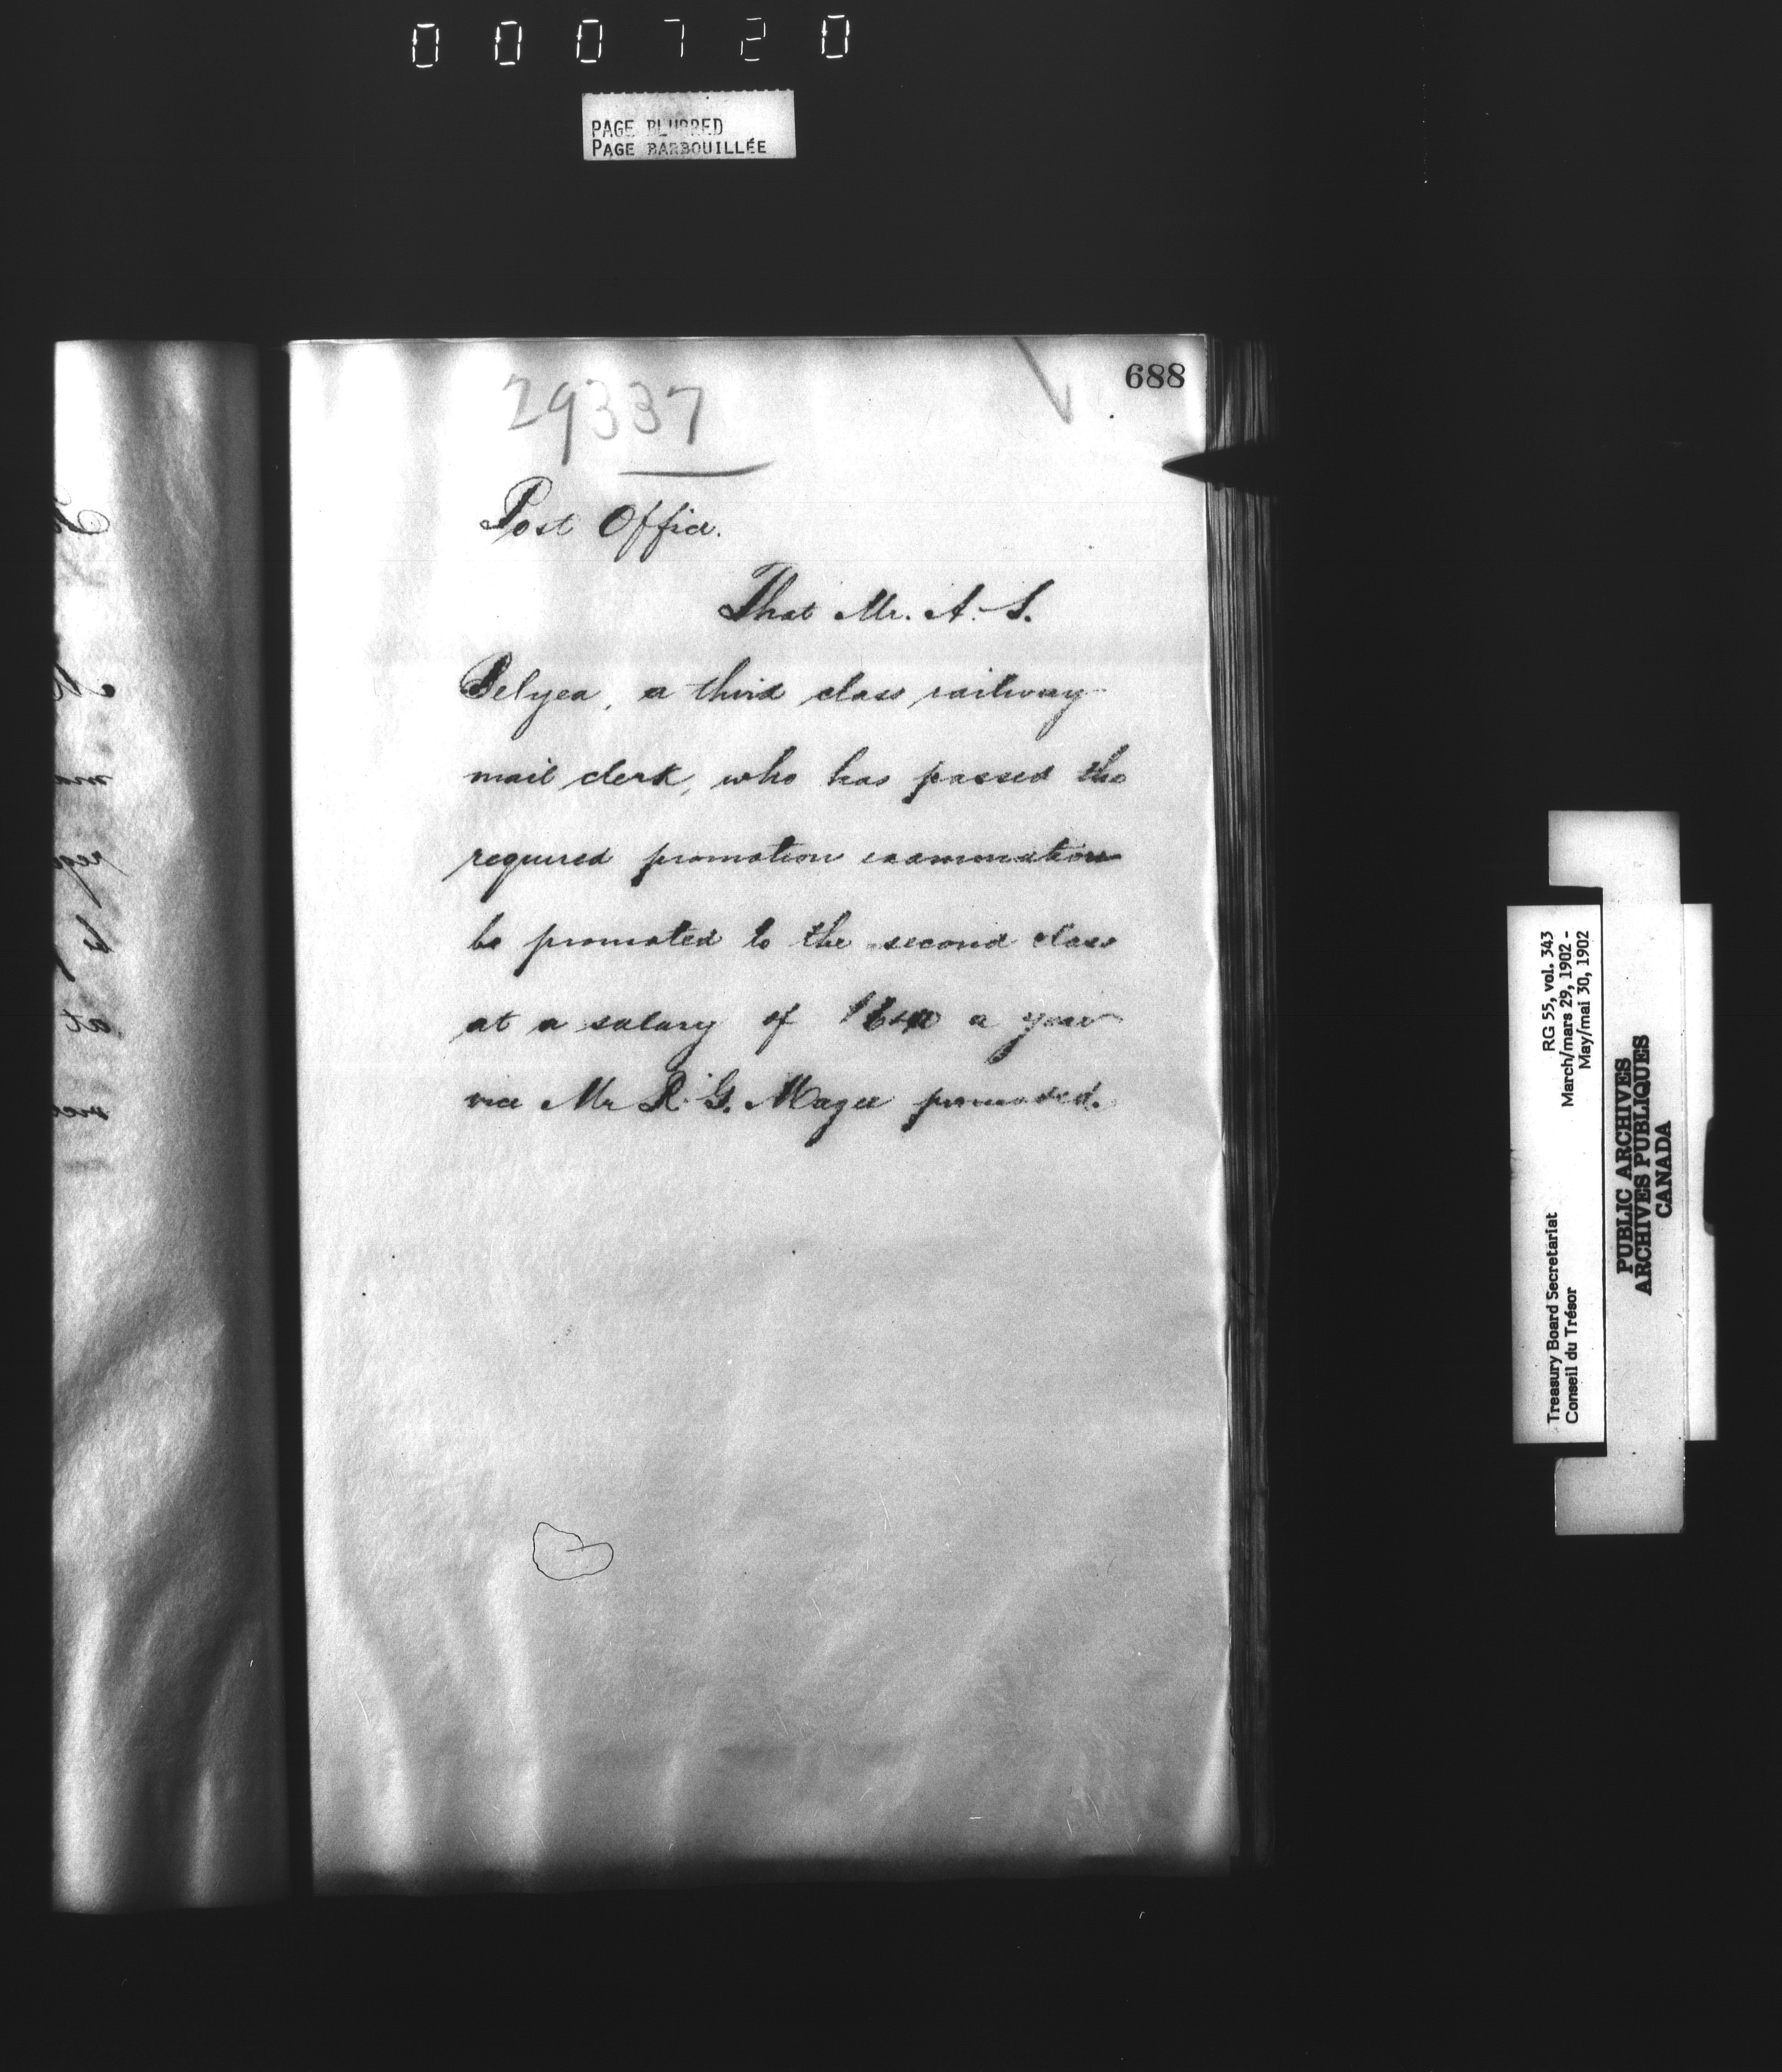 000720
PAGE BLURRED
PAGE BARBOUILLÉE
688
29337
Post Office.
That Mr. A. S.
Belyea, a third class railway
mail clerk, who has passed the
required promotion examination
be promoted to the second class
at a salary of a year
vice Mr R. G. Magee promoted.
Treasury Board Secretariat RG 55, vol. 343
Conseil du Trésor March/mars 29, 1902 -
May/mai 30, 1902
PUBLIC ARCHIVES
ARCHIVES PUBLIQUES
CANADA